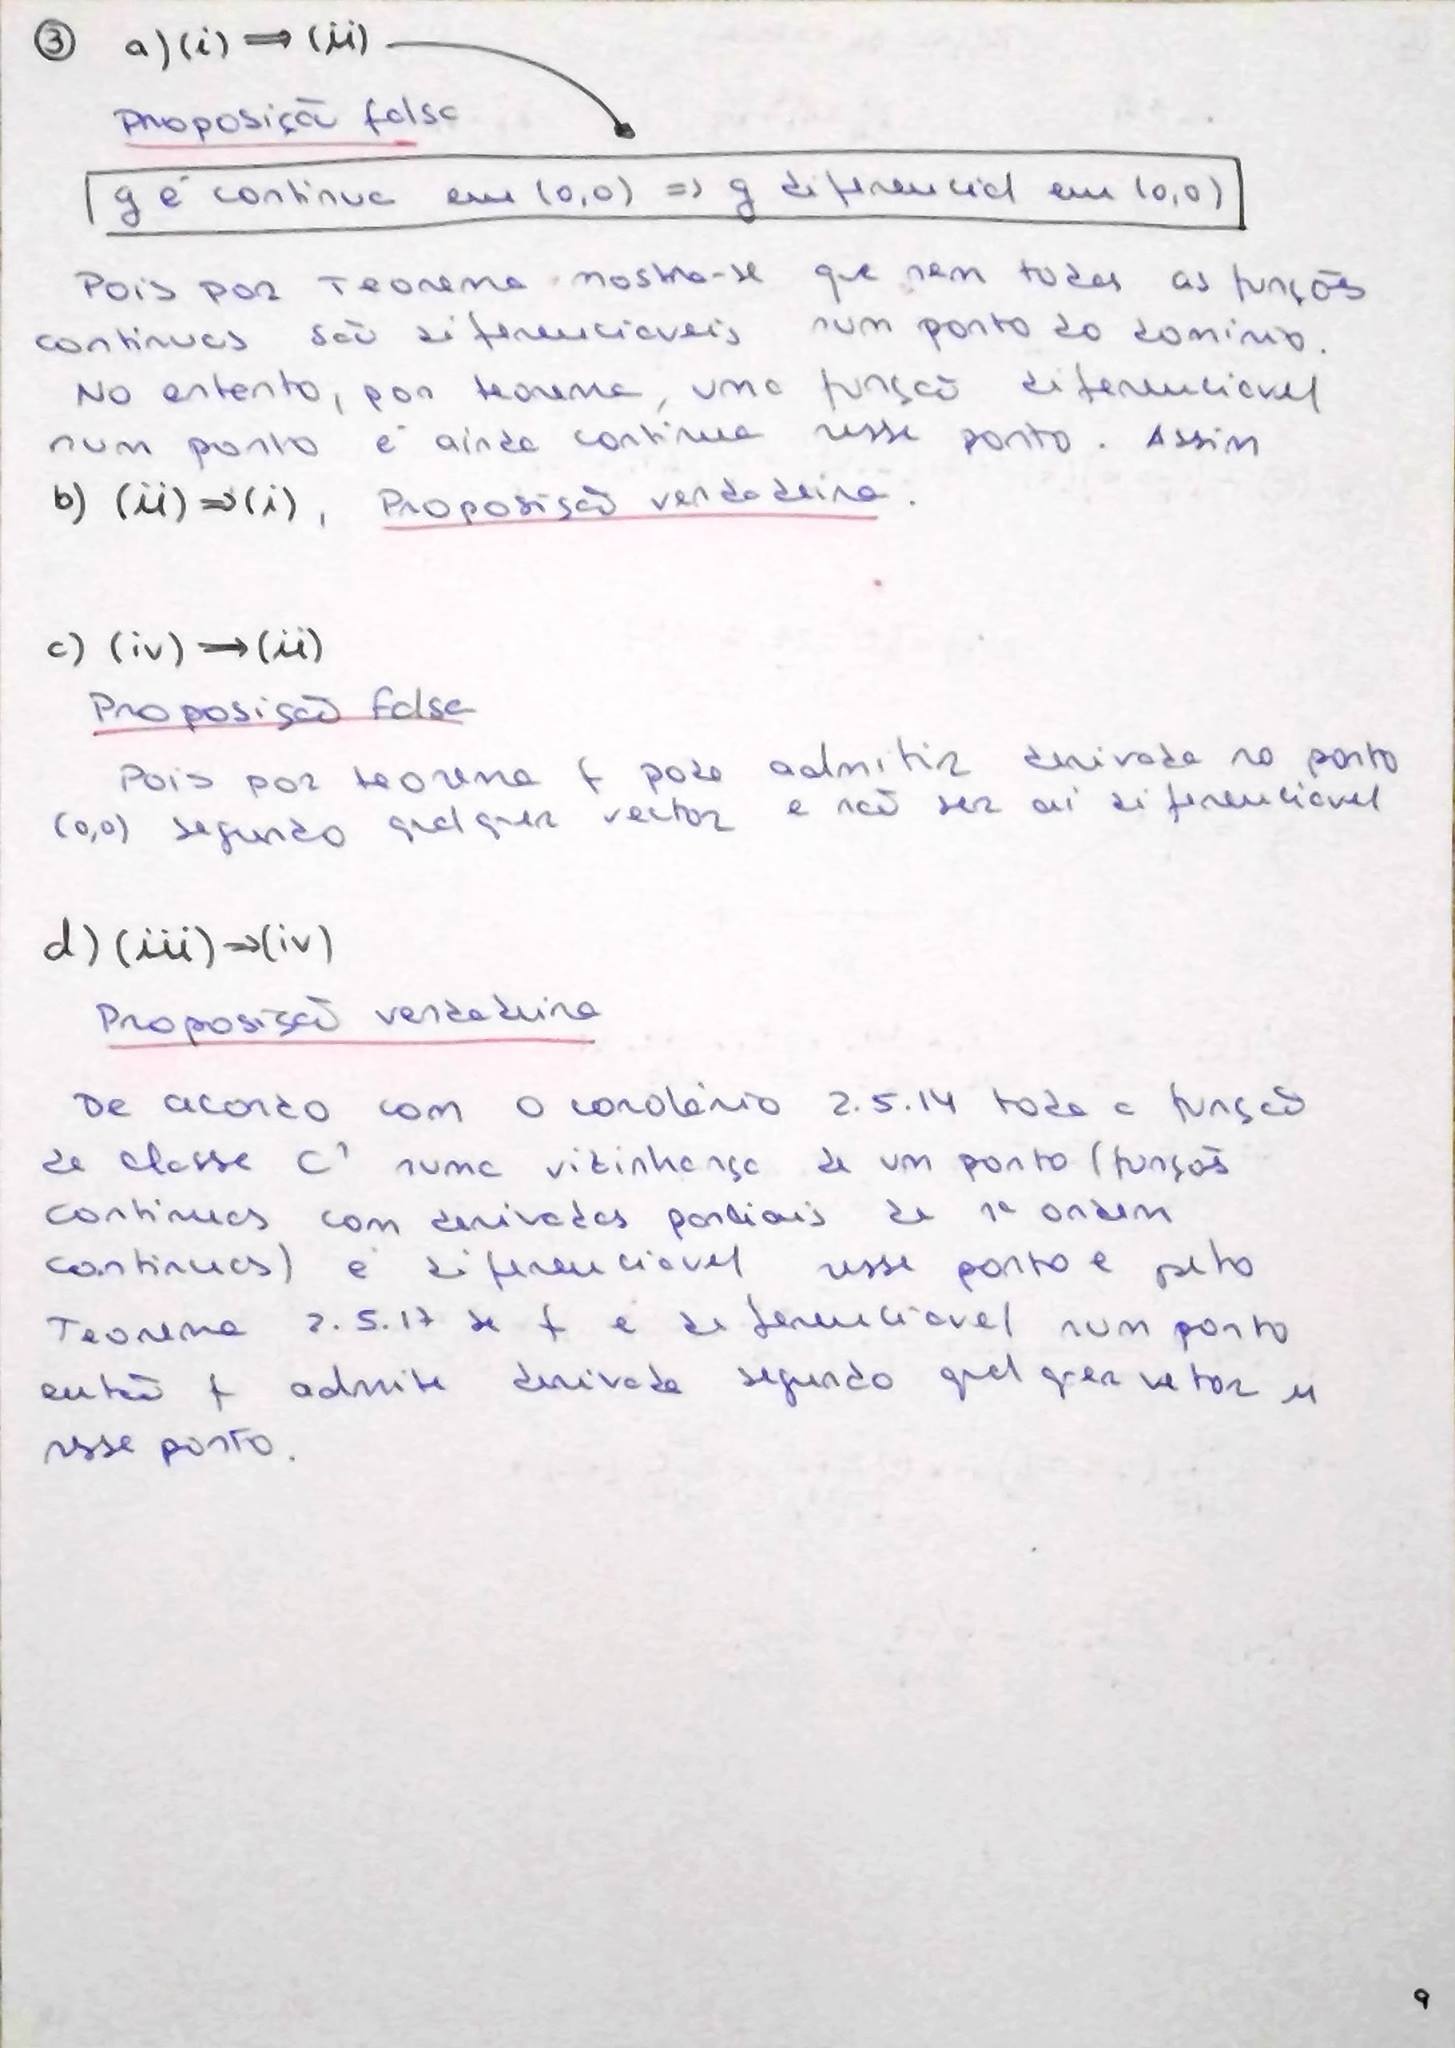 ③ a) (i) ⟹ (ii)
Proposição falsa
g é contínua em (0,0) => g diferenciál em (0,0)
Pois por Teorema mostra-se que nem todas as funções
contínuas são diferenciáveis num ponto do domínio.
No entanto, por teorema, uma função diferenciável
num ponto é ainda contínua nesse ponto. Assim
b) (ii) => (i), Proposição verdadeira.
c) (iv) ⟹ (ii)
Proposição falsa
Pois por teorema f pode admitir derivada no ponto
(0,0) segundo qualquer vector e não ser aí diferenciável
d) (iii) => (iv)
Proposição verdadeira
De acordo com o corolário 2.5.14 toda a função
de classe C¹ numa vizinhança de um ponto (funções
contínuas com derivadas parciais de 1ª ordem
contínuas) é diferenciável nesse ponto e pelo
Teorema 2.5.17 se f é diferenciável num ponto
então f admite derivada segundo qualquer vetor u
nesse ponto.
9